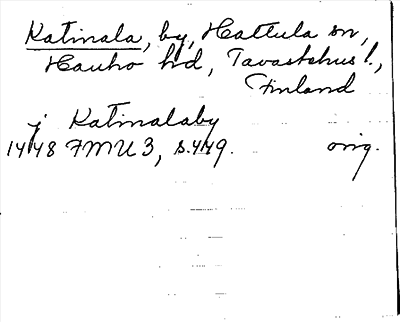 Katinala, by, Hattula sn,
Hauho hd, Tavastehus l.,
Finland
j Katinalaby
1448 FMU 3, s.449. orig.